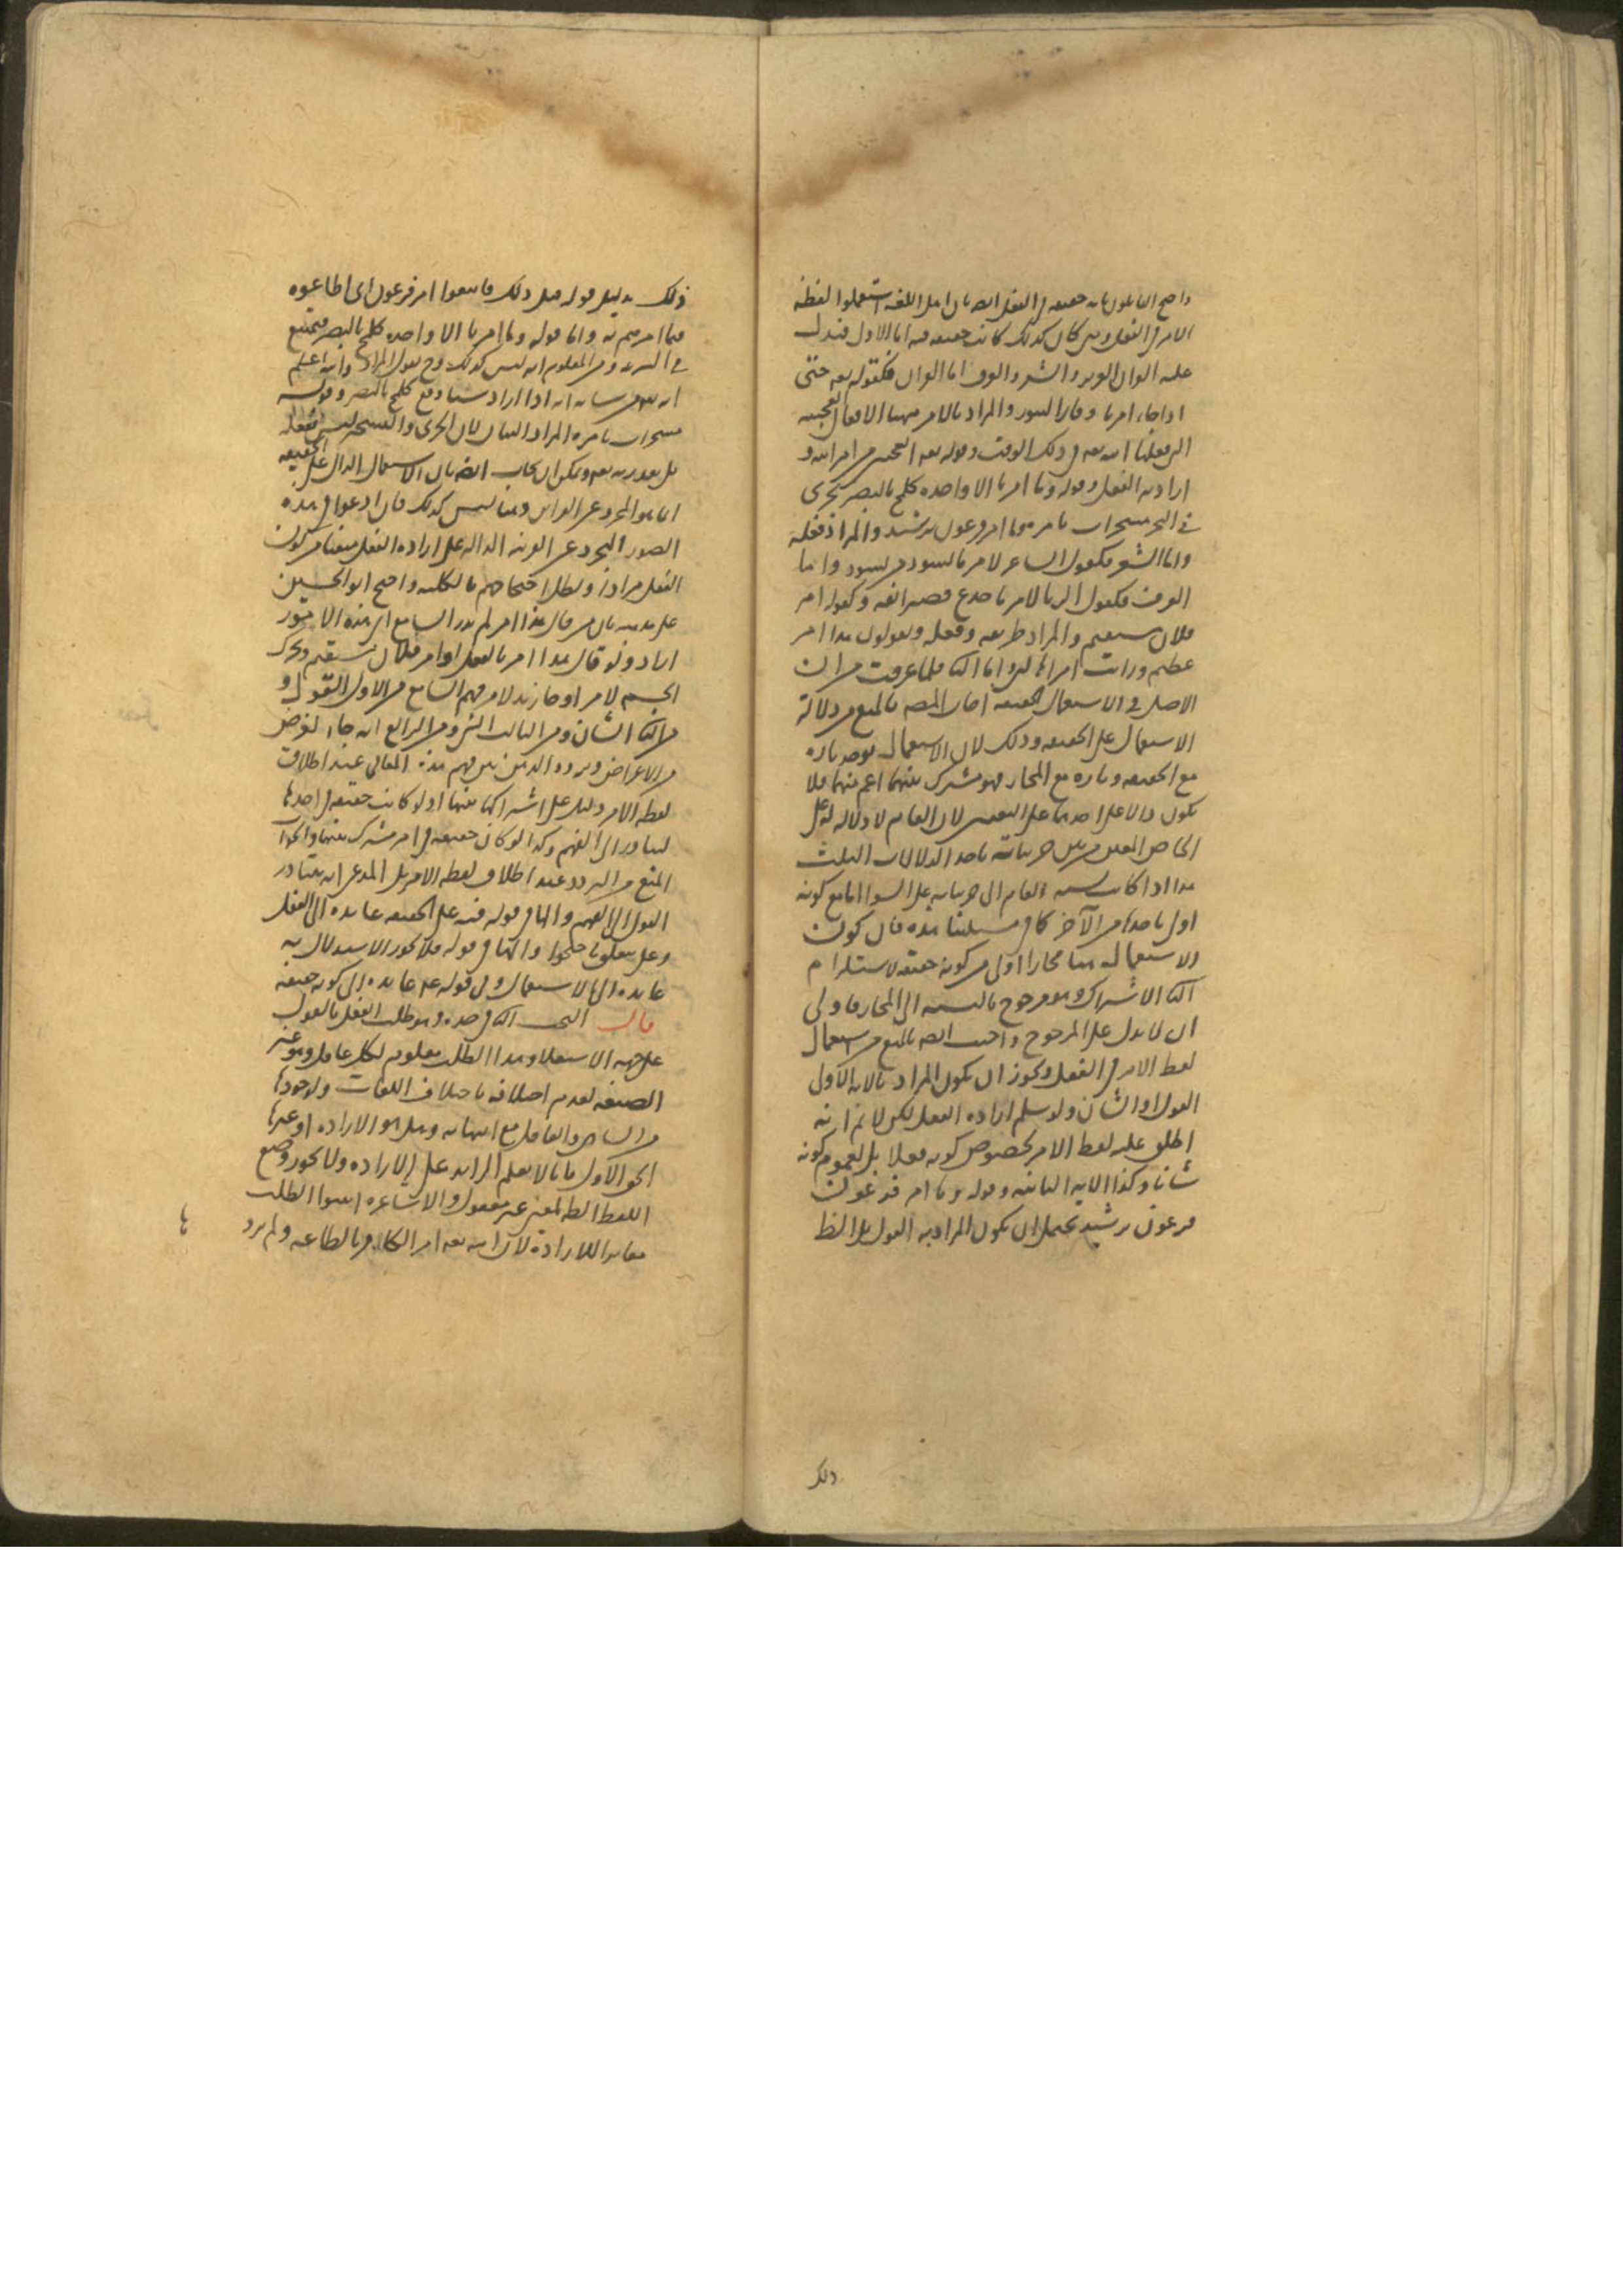 واحتج القائلون بانه حقيقة في الفعل ايضا بان اهل اللغة استعملوا لفظة
الامر في الفعل ومتى كان كذلك كانت حقيقة فيه اما الاول فيدل
عليه القران العزيز والشعر والعرف اما القران فكقوله تعه حتى
اذا جاء امرنا وفار التنور والمراد بالامر ههنا الافعال العجيبه
التي فعلها الله تعه في ذلك الوقت وقوله تعه اتعجبين من امر الله و
اراد به الفعل وقوله وما امرنا الا واحده كلمح بالبصر تجرى
في البحر مسخرات بامره وما امر فرعون برشيد والمراد فعله
واما الشعر فكقول الشاعر لامر ما يسود من يسود واما
العرف فكقول الزبا لامر ما جدع قصير انفه وكقوله امر
فلان مستقيم والمراد طريقه وفعله ويقولون هذا امر
عظيم ورايت امرا هالنى واما الثا فلما عرفت من ان
الاصل في الاستعمال الحقيقة اجاب المصه بالمنع من دلالة
الاستعمال على الحقيقة وذلك لان الاستعمال يوجد تاره
مع الحقيقه وتاره مع المجاز فهو مشترك بينهما اعم منهما فلا
يكون دالا على احدهما على التعيين لان العام لا دلالة له على
الخاص المعين من بين جزئياته باحد الدلالات الثلث
هذا اذا كانت نسبه العام الى جزئياته على السوا اما مع كونه
اولى باحدها من الآخر كما في مسئلتنا هذه فان كون
الاستعمال هنا مجازا اولى من كونه حقيقه لاستلزام
الثا الاشتراك وهو مرجوح بالنسبه الى المجاز فاولى
ان لا يدل على المرجوح واجيب ايضا بالمنع من استعمال
لفظ الامر في الفعل ويجوز ان يكون المراد بالايه الاولى
القول او الشان ولو سلم اراده الفعل لكن لا نم انه
اطلق عليه لفظ الامر لخصوص كونه فعلا بل لعموم كونه
شانا وكذا الايه الثانيه وقوله وما امر فرعون
فرعون برشيد يحتمل ان يكون المراد به القول بل الظ
ذلك
ذلك بدليل قوله قبل ذلك فاتبعوا امر فرعون اى اطاعوه
فيما امرهم به واما قوله وما امرنا الا واحده كلمح بالبصر فيمتنع
ومن المعلوم انه ليس كذلك وح نقول المراد والله اعلم
انه تعه من شانه انه اذا اراد شيئا وقع كلمح بالبصر وقوله
مسخرات بامره المراد الشان لان الجرى والتسخير ليس بفعله
بل بقدرته تعه ويمكن ان يجاب ايضا بان الاستعمال الدال على الحقيقه
انما هو المجرد عن القراين وهنا ليس كذلك فان ادعوا في هذه
الصور التجرد عن القرينه الداله على اراده الفعل منعنا من كون
الفعل مرادا وبطل احتجاجهم بالكليه واحتج ابو الحسين
على مذهبه بان من قال هذا امر لم يدر السامع اى هذه الامور
اراد ولو قال هذا امر بالفعل او امر فلان مستقيم وتحرك
الجسم لامر او جاء زيد لامر فهم السامع من الاول القول و
من الثا الشان ومن الثالث الشى ومن الرابع انه جاء لغرض
من الاغراض وتردد الذهن بين فهم هذه المعانى عند اطلاق
لفظه الامر دليل على اشتراكها بينها اذ لو كانت حقيقه في احدها
لتبادر الى الفهم وكذا لو كان حقيقه في امر مشترك بينها والجواب
المنع من التردد عند اطلاق لفظه الامر بل المدعى انه يتبادر
القول الى الفهم والها في قوله فيه على الحقيقه عايده الى الفعل
وعلى يتعلق بـ والها في قوله فلا يجوز الاستدلال به
عايده الى الاستعمال وفي قوله عايده الى كونه حقيقه
قال البحث الثا في حده وهو طلب الفعل بالقول
على جهه الاستعلا وهذا الطلب معلوم لكل عاقل وهو غير
الصيغه لعدم اختلافه باختلاف اللغات ولوجودها
من الساهى والغافل مع انتفائه وهل هو الاراده او غيرها
الحق الاول فانا لا نعلم الزايد على الاراده ولا يجوز وضع
اللفظ الظ لمعنى غير معقول والاشاعره اثبتوا الطلب
مغايرا للارادة لان الله تعه امر الكافر بالطاعه ولم يرد
ها